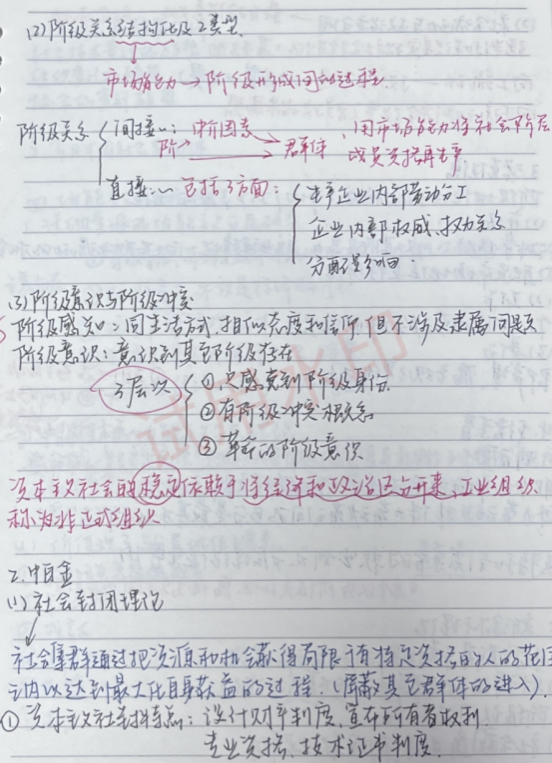 (2)阶级关系结构化及2类型.
市场能力→阶级形成间的过程
阶级关系
间接:: 中介因素
阶 → 群体 用市场能力将社会阶层
成员资格再生产
直接:: 包括3方面:
生产企业内部劳动分工
企业内部权威、权力关系
分配 影响.
(3)阶级意识与阶级冲突
阶级感知::同生活方式、相似态度和信仰,但不涉及隶属问题
阶级意识:意识到其它阶级存在
3层次
①只感觉到阶级身份
②有阶级冲突概念
③革命的阶级意识
资本主义社会的稳定依赖于将经济和政治区分开来,工业组织
称为非正式组织
2.帕金
(1)社会封闭理论
社会集群通过把资源和机会获得局限于有特定资格的人的范围
之内以达到最大化自身获益的过程.(屏蔽其它群体的进入).
①资本主义社封特点:设计财产制度、宣布所有者权利
专业资格、技术证书制度.
试用水印